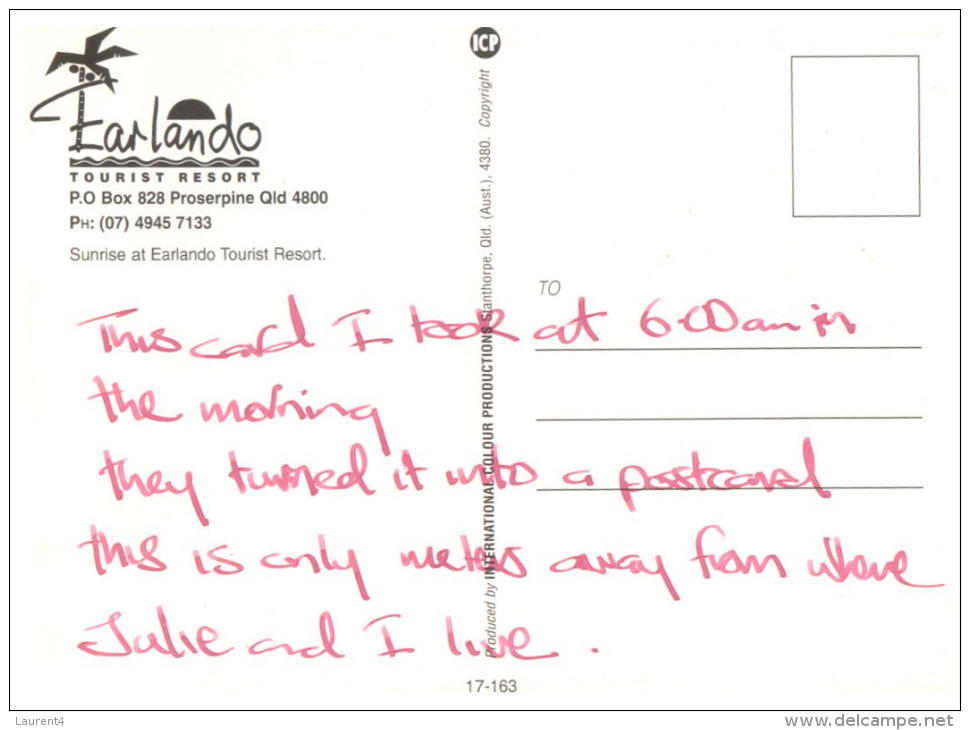 ICP
Earlando
TOURIST RESORT
P.O Box 828 Proserpine Qld 4800
PH: (07) 4945 7133
Sunrise at Earlando Tourist Resort.
Produced by INTERNATIONAL COLOUR PRODUCTIONS Stanthorpe, Qld. (Aust.), 4380. Copyright
TO
This card I took at 6.00am in
the morning
they turned it into a postcard
this is only meters away from where
Julie and I live.
17-163
Laurent4
www.delcampe.net